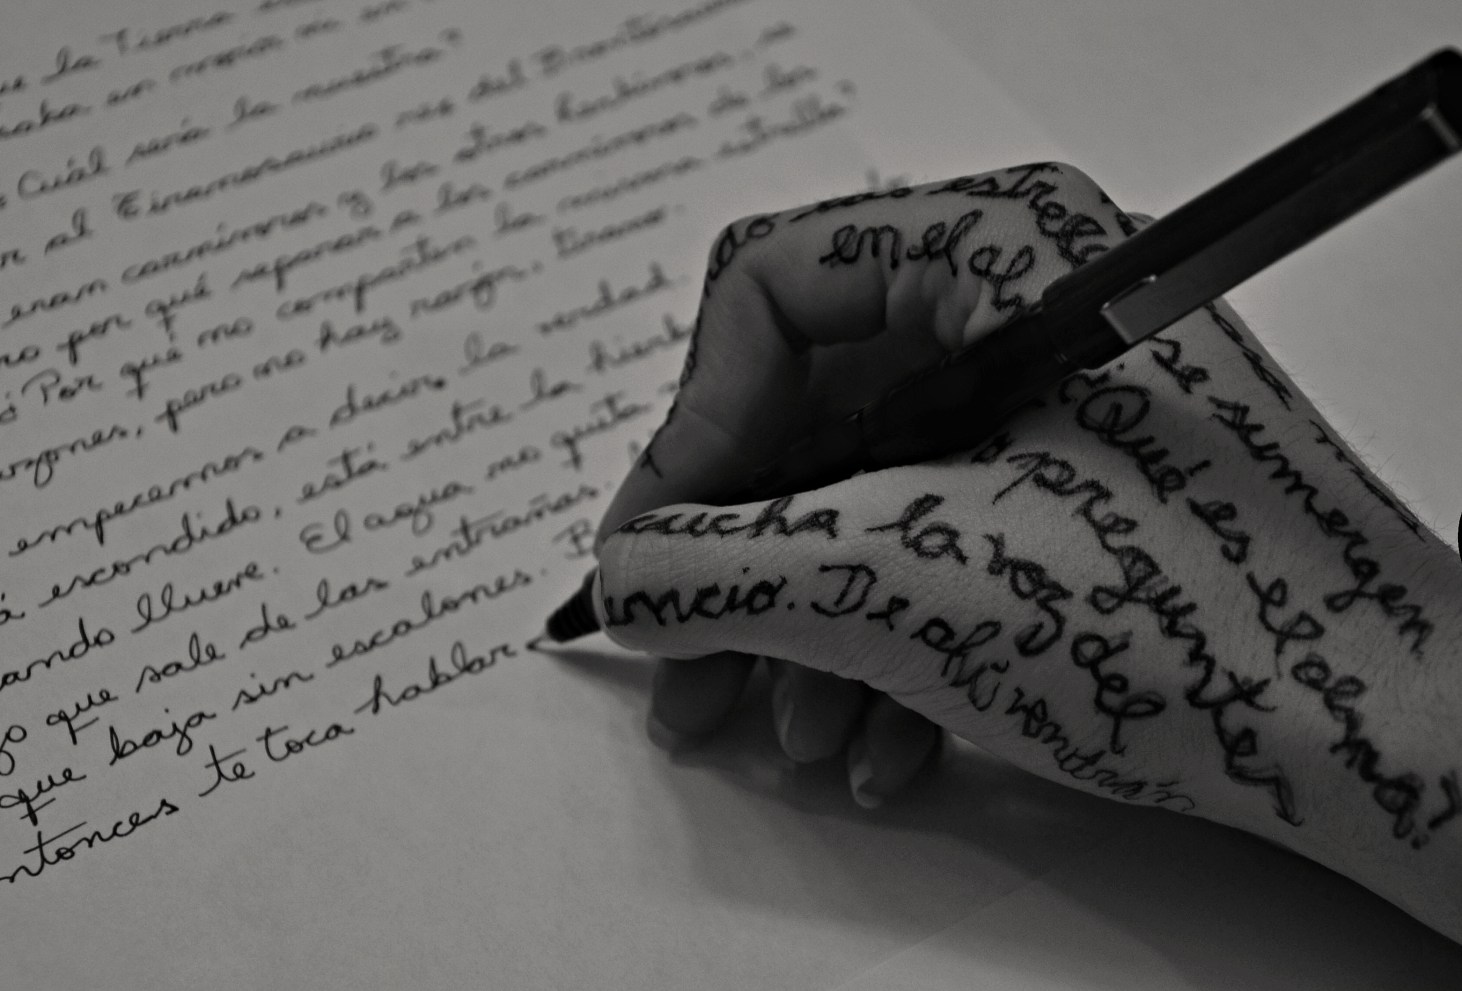 ue la Tierra
en
¿Cuál sería la nuestra?
r al Tiranosaurio rex del Brontosaurio
eran carnívoros y los otros herbívoros, se
ro por qué separar a los carnívoros de los
¿Por qué no comparten la misma estrella?
azones, pero no hay ningún
empecemos a decir la verdad.
á escondido, está entre la hierb
uando llueve. El agua no quita
go que sale de las entrañas.
que baja sin escalones. B
ntonces te toca hablar
do sus estrella
en el al
se sumergen
¿Qué es el alma?
preguntes
cucha la voz del
encio. De ahí vendrán